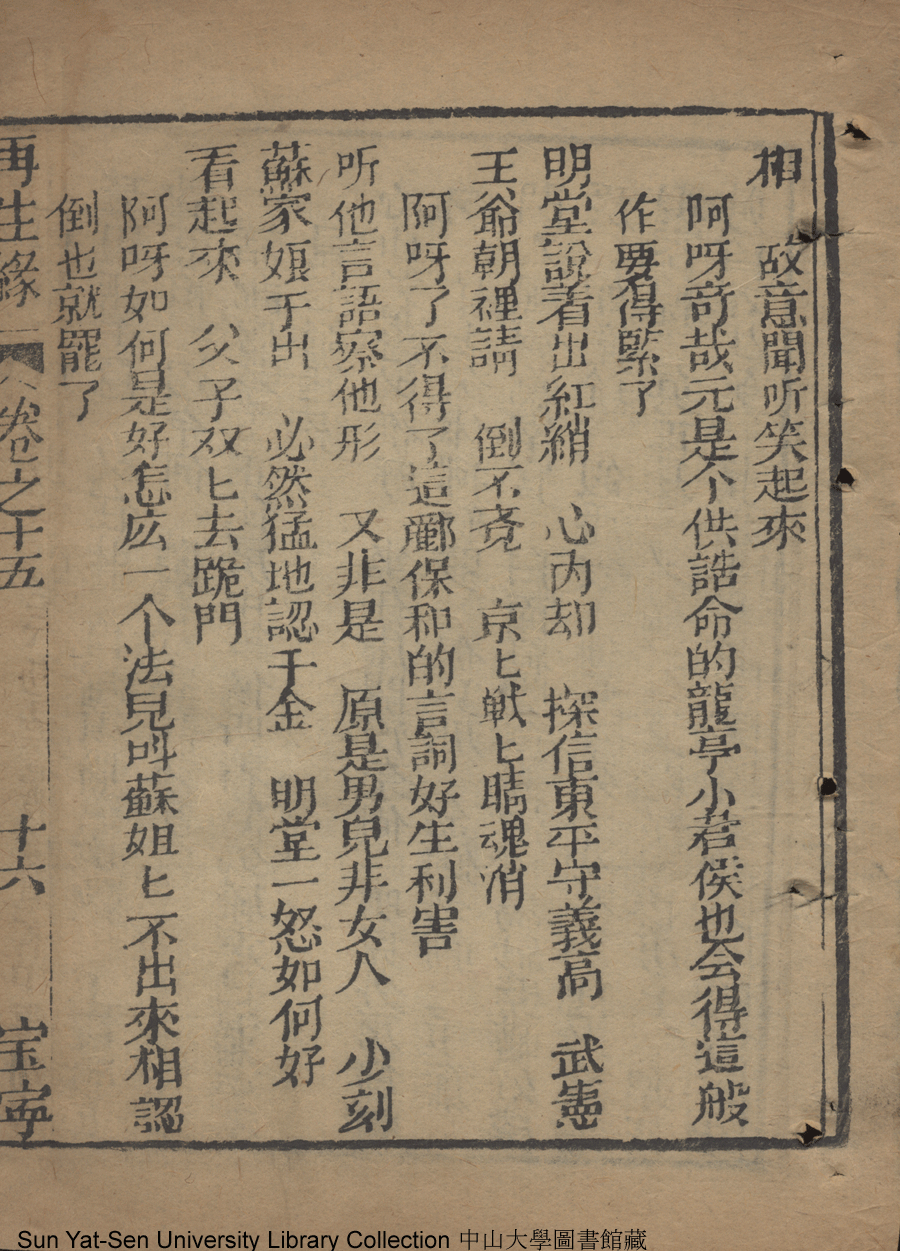 相　故意聞听笑起來
阿呀奇哉元是个供誥命的龍亭小君侯也会得這般
作要得緊了
明堂說着出紅綃　心内却　探信東平守義高　武憲
王爺朝裡請　倒不竟　京匕戰匕瞔魂消
阿呀了不得了這酈保和的言詞好生利害
听他言語察他形　又非是　原是男兒非女人　少刻
蘇家娘于出　必然猛地認千金　明堂一怒如何好
看起來　父子双匕去跪門
阿呀如何是好怎庅一个法見呌蘇姐匕不出來相認
倒也就罷了
再生緣　卷之十五　十六　宝寧
Sun Yat-Sen University Library Collection 中山大學圖書館藏